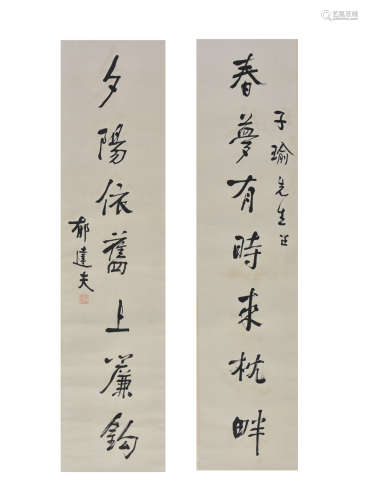 春夢有時來枕畔
子瑜先生正
夕陽依舊上簾鈎
郁達夫